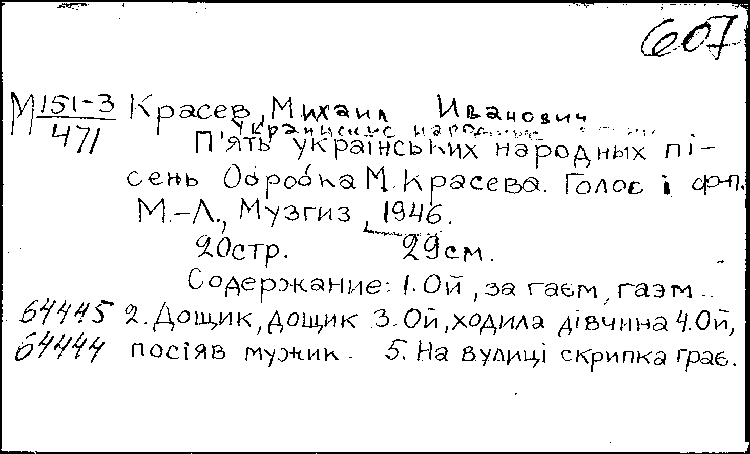 607
М 151-3 Красев, Михаил Иванович
471 Украинские народные
П'ять українських народных пі-
сень Обробка М. Красева. Голос і ф-п.
М.-Л., Музгиз, 1946.
20стр. 29см.
Содержание: 1. Ой, за гаєм, гаэм..
64445 2. Дощик, дощик 3. Ой, ходила дівчина 4. Ой,
64444 посіяв мужик. 5. На вулиці скрипка грає.